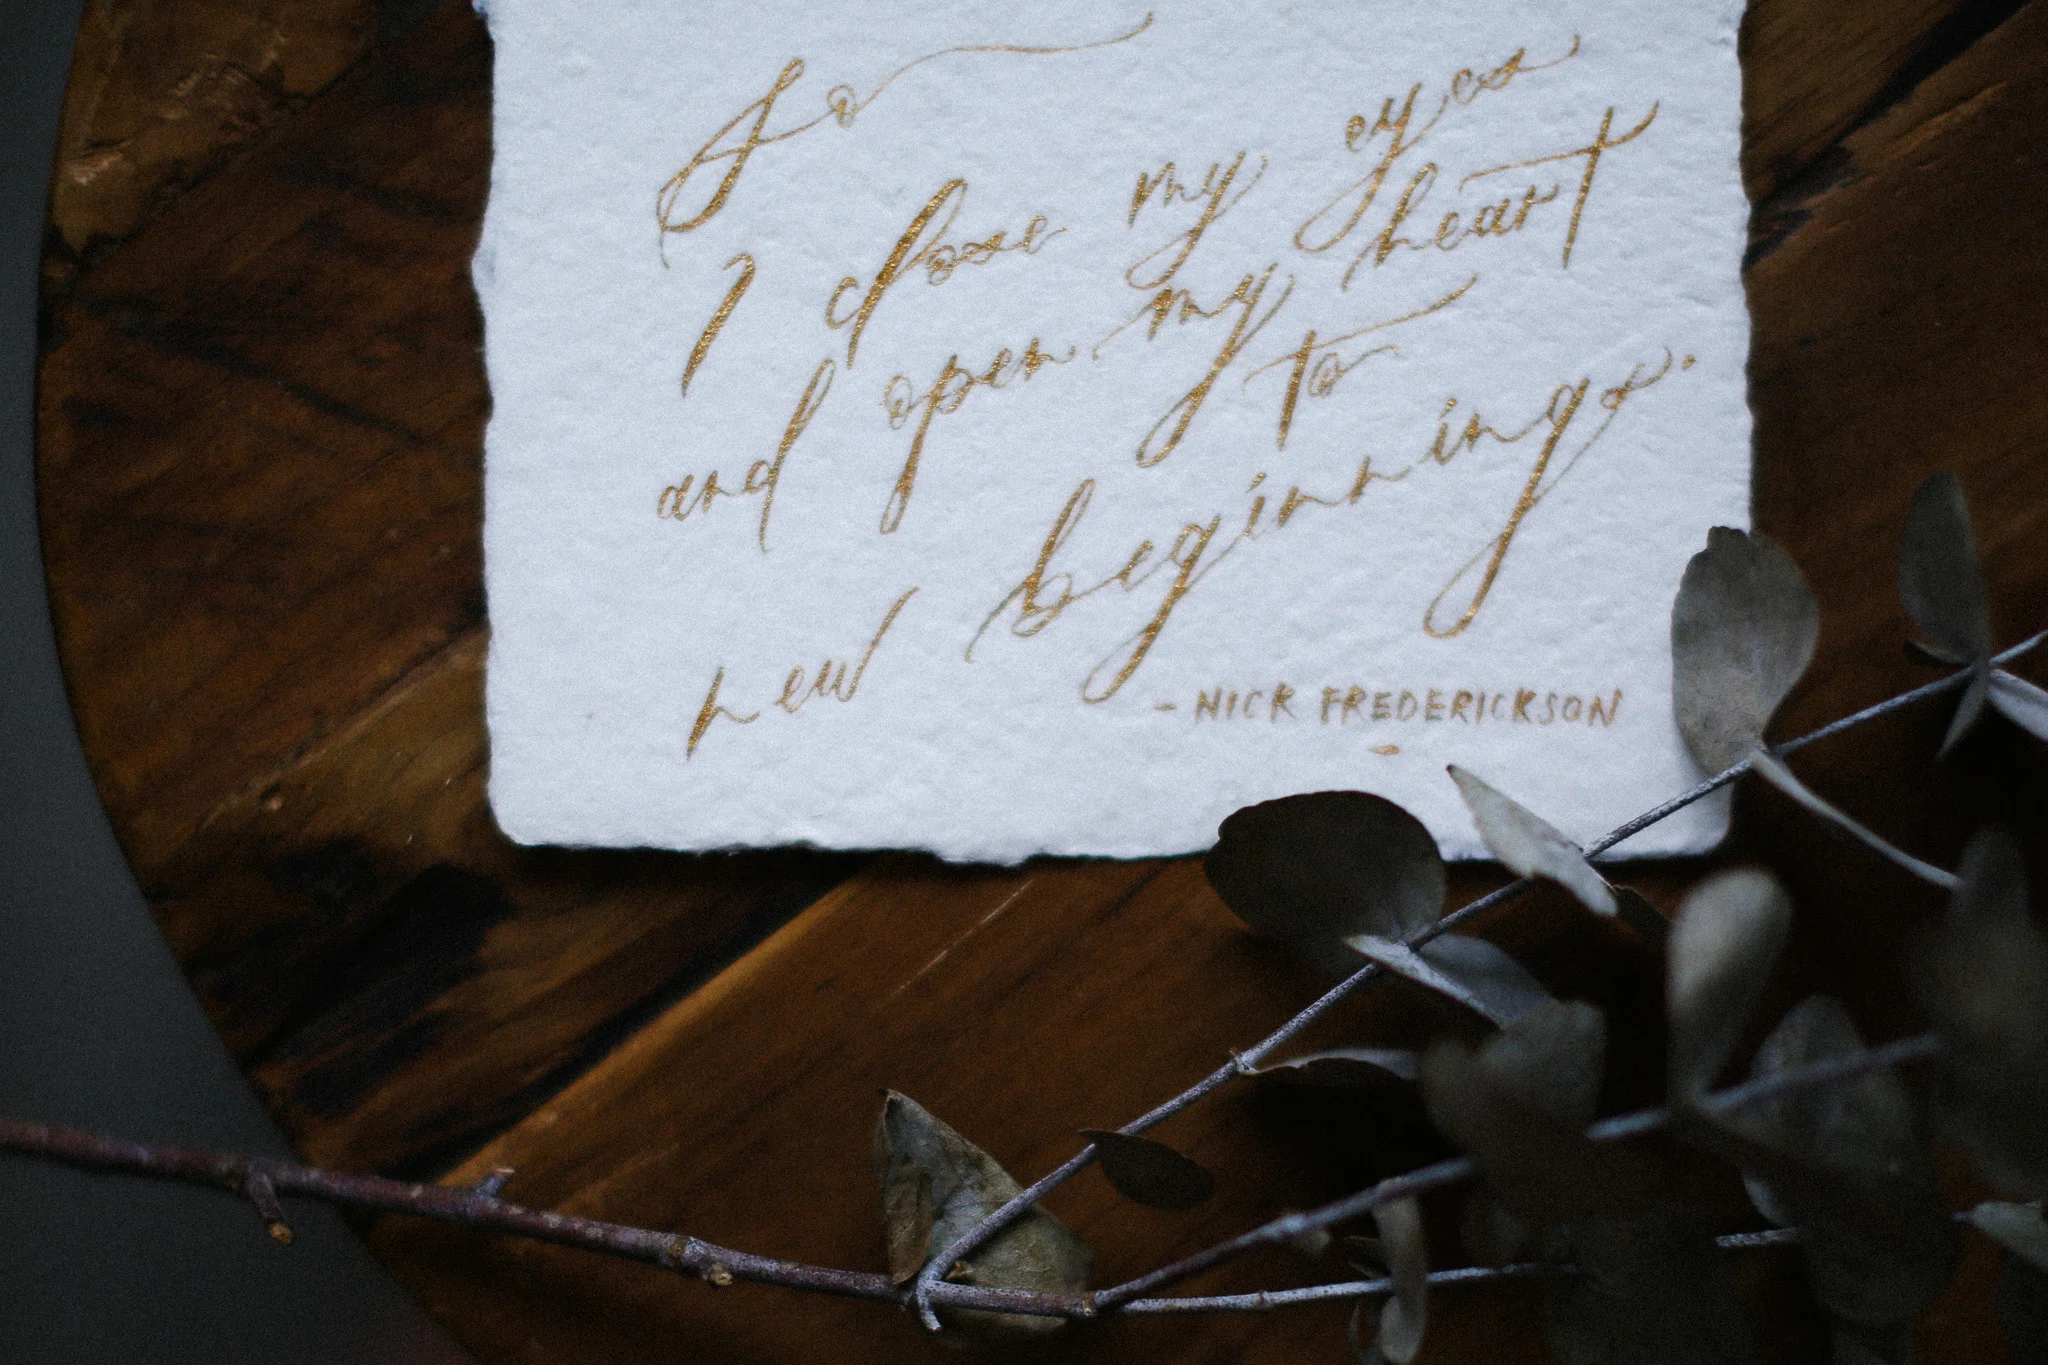 So
I close my eyes
and open my heart
to
new beginnings.
- NICK FREDERICKSON